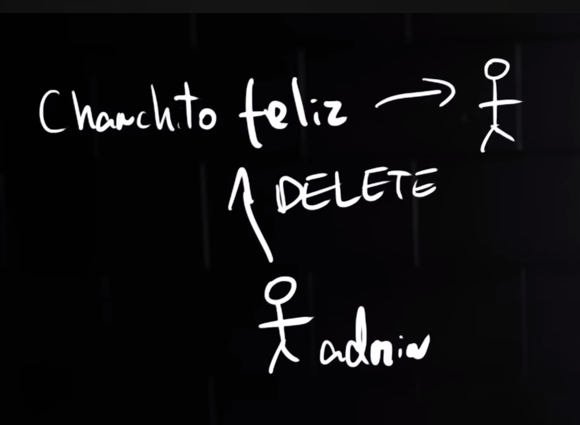 Chanchito feliz
DELETE
admin